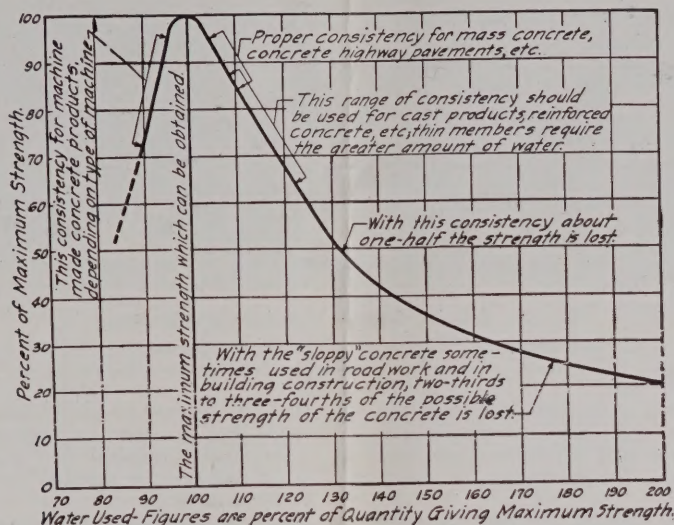 Percent of Maximum Strength.
100
90
80
70
60
50
40
30
20
10
0
This consistency for machine
made concrete products,
depending on type of machine.
The maximum strength which can be obtained.
Proper consistency for mass concrete,
concrete highway pavements, etc.
This range of consistency should
be used for cast products, reinforced
concrete, etc; thin members require
the greater amount of water.
With this consistency about
one-half the strength is lost.
With the "sloppy" concrete some-
times used in road work and in
building construction, two-thirds
to three-fourths of the possible
strength of the concrete is lost.
70 80 90 100 110 120 130 140 150 160 170 180 190 200
Water Used- Figures are percent of Quantity Giving Maximum Strength.